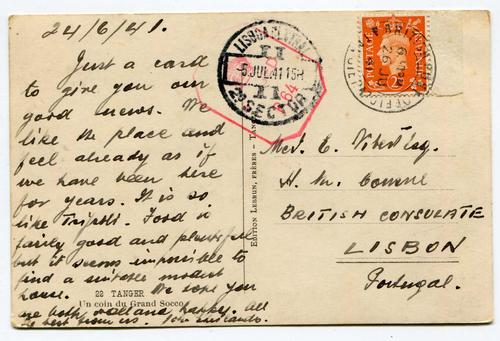 24/6/41.
Just a card
to give you our
good news. We
like the place and
feel already as if
we have been here
for years. It is so
like Tripoli. Food is
fairly good and plentiful
but it seems impossible to
find a suitable modest
house. We hope you
are both well and happy. All
the best from us.
22 TANGER
Un coin du Grand Socco
EDITION LEBRUN, FRÈRES - TAN
LISBOA CENTRAL
II
-5 JUL. 41 16H
II
2º SECTOR
POSTAGE
BRITISH
OFFICE
H. M. Consul
BRITISH CONSULATE
LISBON
Portugal.